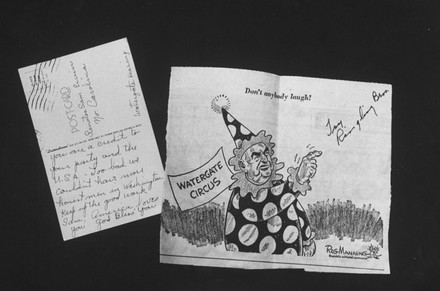 POST CARD
Senator Sam Ervin
No Carolina
Watergate Hearing
You are a credit to
your party and the
U.S.A. - too bad we
couldn't have more
honest men in Washington
Keep up the good work
America loves
you God Bless You!
Don't anybody laugh!
Try
Ringling Bros
WATERGATE
CIRCUS
REG MANNING